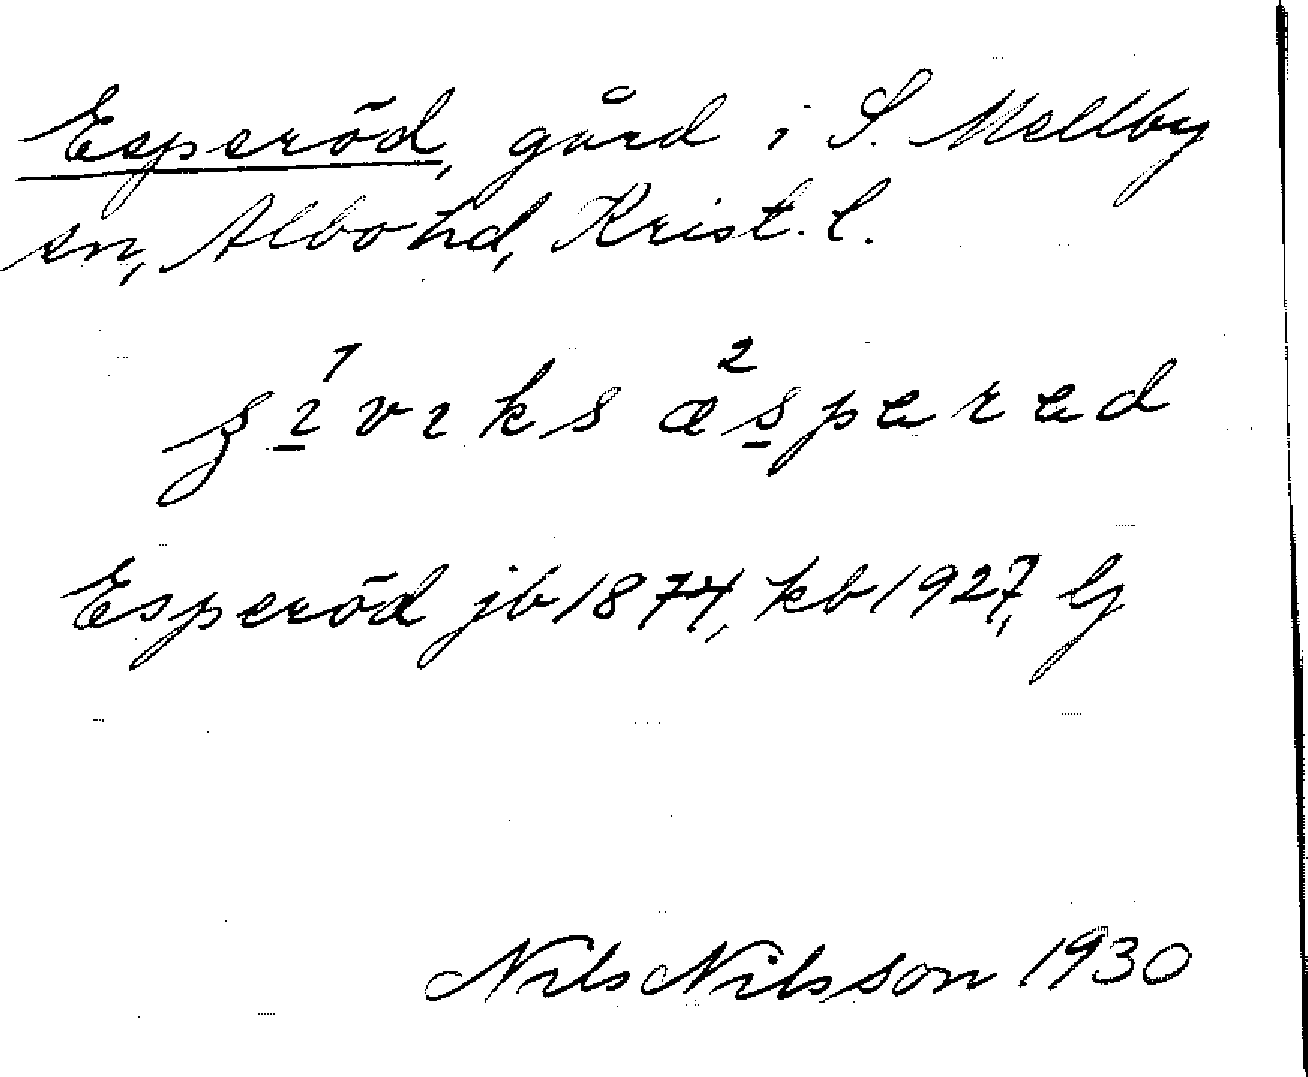 Esperöd, gård i S. Mellby
sn, Albo hd, Krist. l.
1 2
ʒɪvɪks æspəʀəd
Esperöd jb 1874, kb 1927, G
Nils Nilsson 1930